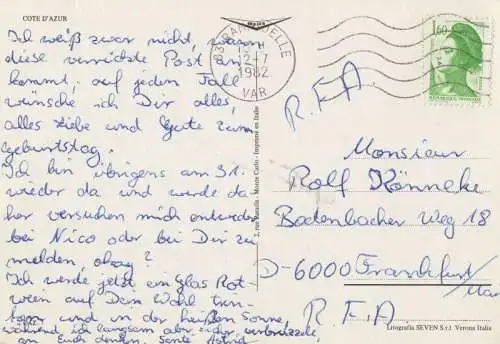 COTE D'AZUR
Ich weiß zwar nicht, wann
diese verrückte Post an-
kommt; auf jeden Fall
wünsche ich Dir alles,
alles Liebe und Gute zum
Geburtstag.
Ich bin übrigens am 31.
wieder da und werde da-
her versuchen mich entweder
bei Nico oder bei Dir zu
melden, okay?
Ich werde jetzt ein Glas Rot-
wein auf Dein Wohl trin-
ken und in der heißen Sonne,
während ich langsam aber sicher verbrutzele,
an Euch denken. Astrid
2, rue Biovès - Monte Carlo - Imprimé en Italie
83
12-7
1982
VAR
1,60
R.F.A.
Monsieur
Rolf Könneke
Bodenbacher Weg 18
D-6000 Frankfurt/
Main
R.F.A.
Litografia SEVEN S.r.l. Verona Italia